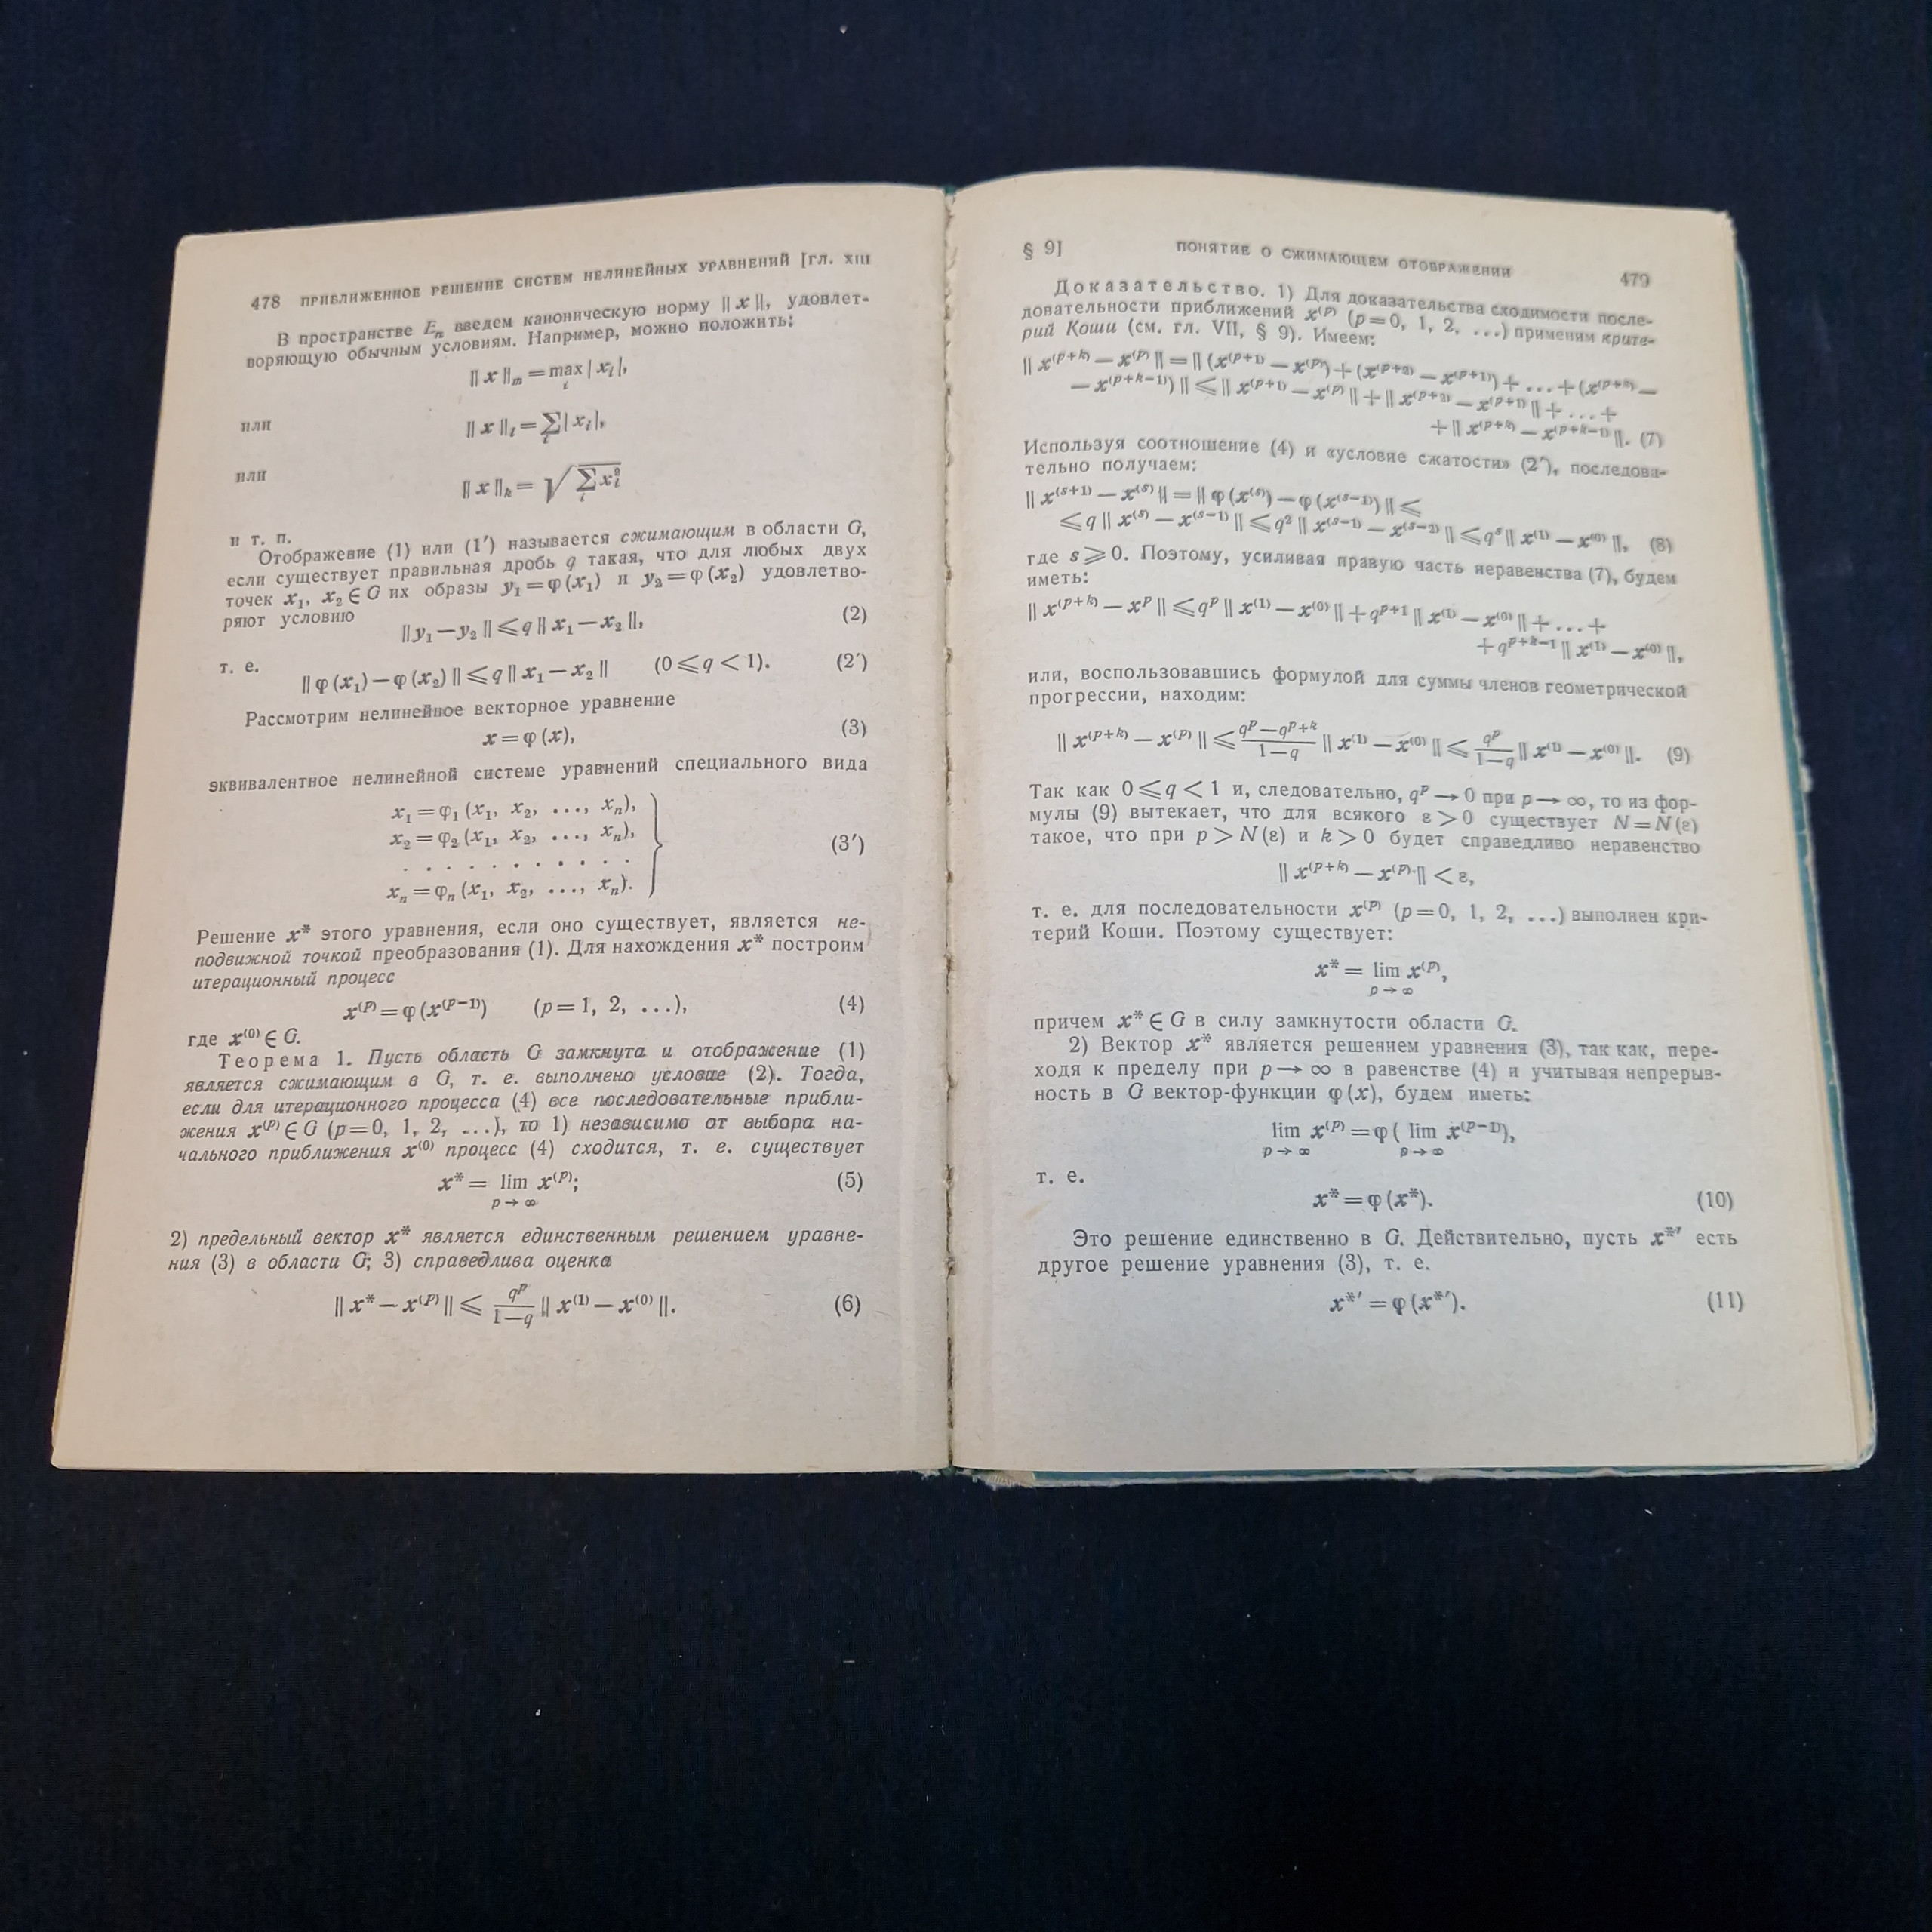 478 ПРИБЛИЖЕННОЕ РЕШЕНИЕ СИСТЕМ НЕЛИНЕЙНЫХ УРАВНЕНИЙ [ГЛ. XIII
В пространстве Eₙ введем каноническую норму ‖x‖, удовлет-
воряющую обычным условиям. Например, можно положить:
‖x‖ₘ = max |xᵢ|,
i
или
‖x‖ₗ = ∑|xᵢ|,
i
или
‖x‖ₖ = √∑xᵢ²
i
и т. п.
Отображение (1) или (1′) называется сжимающим в области G,
если существует правильная дробь q такая, что для любых двух
точек x₁, x₂ ∈ G их образы y₁ = φ(x₁) и y₂ = φ(x₂) удовлетво-
ряют условию
‖y₁ − y₂‖ ⩽ q‖x₁ − x₂‖, (2)
т. е.
‖φ(x₁) − φ(x₂)‖ ⩽ q‖x₁ − x₂‖ (0 ⩽ q < 1). (2′)
Рассмотрим нелинейное векторное уравнение
x = φ(x), (3)
эквивалентное нелинейной системе уравнений специального вида
x₁ = φ₁(x₁, x₂, ..., xₙ),
x₂ = φ₂(x₁, x₂, ..., xₙ),
. . . . . . . . . . (3′)
xₙ = φₙ(x₁, x₂, ..., xₙ).
Решение x* этого уравнения, если оно существует, является не-
подвижной точкой преобразования (1). Для нахождения x* построим
итерационный процесс
x⁽ᵖ⁾ = φ(x⁽ᵖ⁻¹⁾) (p = 1, 2, ...), (4)
где x⁽⁰⁾ ∈ G.
Теорема 1. Пусть область G замкнута и отображение (1)
является сжимающим в G, т. е. выполнено условие (2). Тогда,
если для итерационного процесса (4) все последовательные прибли-
жения x⁽ᵖ⁾ ∈ G (p = 0, 1, 2, ...), то 1) независимо от выбора на-
чального приближения x⁽⁰⁾ процесс (4) сходится, т. е. существует
x* = lim x⁽ᵖ⁾; (5)
p → ∞
2) предельный вектор x* является единственным решением уравне-
ния (3) в области G; 3) справедлива оценка
‖x* − x⁽ᵖ⁾‖ ⩽ qᵖ/(1−q) ‖x⁽¹⁾ − x⁽⁰⁾‖. (6)
§ 9] ПОНЯТИЕ О СЖИМАЮЩЕМ ОТОБРАЖЕНИИ 479
Доказательство. 1) Для доказательства сходимости после-
довательности приближений x⁽ᵖ⁾ (p = 0, 1, 2, ...) применим крите-
рий Коши (см. гл. VII, § 9). Имеем:
‖x⁽ᵖ⁺ᵏ⁾ − x⁽ᵖ⁾‖ = ‖(x⁽ᵖ⁺¹⁾ − x⁽ᵖ⁾) + (x⁽ᵖ⁺²⁾ − x⁽ᵖ⁺¹⁾) + ... + (x⁽ᵖ⁺ᵏ⁾ −
− x⁽ᵖ⁺ᵏ⁻¹⁾)‖ ⩽ ‖x⁽ᵖ⁺¹⁾ − x⁽ᵖ⁾‖ + ‖x⁽ᵖ⁺²⁾ − x⁽ᵖ⁺¹⁾‖ + ... +
+ ‖x⁽ᵖ⁺ᵏ⁾ − x⁽ᵖ⁺ᵏ⁻¹⁾‖. (7)
Используя соотношение (4) и «условие сжатости» (2′), последова-
тельно получаем:
‖x⁽ˢ⁺¹⁾ − x⁽ˢ⁾‖ = ‖φ(x⁽ˢ⁾) − φ(x⁽ˢ⁻¹⁾)‖ ⩽
⩽ q‖x⁽ˢ⁾ − x⁽ˢ⁻¹⁾‖ ⩽ q²‖x⁽ˢ⁻¹⁾ − x⁽ˢ⁻²⁾‖ ⩽ qˢ‖x⁽¹⁾ − x⁽⁰⁾‖, (8)
где s ⩾ 0. Поэтому, усиливая правую часть неравенства (7), будем
иметь:
‖x⁽ᵖ⁺ᵏ⁾ − xᵖ‖ ⩽ qᵖ‖x⁽¹⁾ − x⁽⁰⁾‖ + qᵖ⁺¹‖x⁽¹⁾ − x⁽⁰⁾‖ + ... +
+ qᵖ⁺ᵏ⁻¹‖x⁽¹⁾ − x⁽⁰⁾‖,
или, воспользовавшись формулой для суммы членов геометрической
прогрессии, находим:
‖x⁽ᵖ⁺ᵏ⁾ − x⁽ᵖ⁾‖ ⩽ (qᵖ − qᵖ⁺ᵏ)/(1−q) ‖x⁽¹⁾ − x⁽⁰⁾‖ ⩽ qᵖ/(1−q) ‖x⁽¹⁾ − x⁽⁰⁾‖. (9)
Так как 0 ⩽ q < 1 и, следовательно, qᵖ → 0 при p → ∞, то из фор-
мулы (9) вытекает, что для всякого ε > 0 существует N = N(ε)
такое, что при p > N(ε) и k > 0 будет справедливо неравенство
‖x⁽ᵖ⁺ᵏ⁾ − x⁽ᵖ⁾‖ < ε,
т. е. для последовательности x⁽ᵖ⁾ (p = 0, 1, 2, ...) выполнен кри-
терий Коши. Поэтому существует:
x* = lim x⁽ᵖ⁾,
p → ∞
причем x* ∈ G в силу замкнутости области G.
2) Вектор x* является решением уравнения (3), так как, пере-
ходя к пределу при p → ∞ в равенстве (4) и учитывая непрерыв-
ность в G вектор-функции φ(x), будем иметь:
lim x⁽ᵖ⁾ = φ( lim x⁽ᵖ⁻¹⁾),
p → ∞ p → ∞
т. е.
x* = φ(x*). (10)
Это решение единственно в G. Действительно, пусть x*′ есть
другое решение уравнения (3), т. е.
x*′ = φ(x*′). (11)